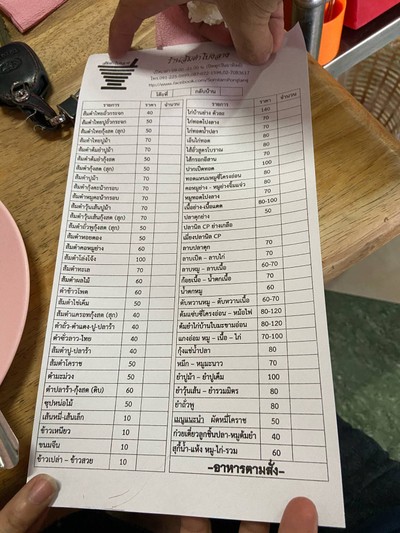 ร้านส้มตำโปงลาง
โต๊ะที่ กลับบ้าน
รายการ ราคา จำนวน
ส้มตำไทย 40
ส้มตำไทย 50
ส้มตำไทยกุ้งสด (สุก) 50
ส้มตำไทยปูม้า 70
ส้มตำ 70
ส้มตำ 50
ส้มตำกุ้งสด (สุก) 50
ส้มตำปูม้า 70
ส้มตำ 70
ส้มตำหมูกรอบ 70
ส้มตำวุ้นเส้นปูม้า 70
ส้มตำวุ้นเส้นกุ้งสด (สุก) 50
ส้มตำถั่วพูกุ้งสด (สุก) 50
ส้มตำหอยดอง 50
ส้มตำคอหมูย่าง 50
ส้มตำโล่งโจ้ง 100
ส้มตำทะเล 70
ส้มตำผลไม้ 60
ตำข้าวโพด 60
ส้มตำไข่เค็ม 50
ส้มตำแครอทกุ้งสด (สุก) 60
ตำถั่ว-ตำแตง-ปู-ปลาร้า 40
ตำซั่วลาว-ไทย 40
ส้มตำปู-ปลาร้า 40
ส้มตำโคราช 50
ตำมะม่วง 50
ตำปลาร้า-กุ้งสด (ดิบ) 60
ซุปหน่อไม้ 50
เส้นหมี่-เส้นเล็ก 10
ข้าวเหนียว 10
ขนมจีน 10
ข้าวเปล่า - ข้าวสวย 10
รายการ ราคา จำนวน
ไก่บ้านย่าง ตัวละ 140
ไก่ทอดโปงลาง 70
ไก่ทอดน้ำปลา 70
เอ็นไก่ทอด 80
ไส้อั่วสูตรโบราณ 80
ไส้กรอกอีสาน 70
ปากเป็ดทอด 100
ทอดแหนมหมูซี่โครงอ่อน 80
คอหมูย่าง - หมูย่างจิ้มแจ่ว 70
หมูทอดโปงลาง 70
เนื้อย่าง-เนื้อแดด 80-100
ปลาดุกย่าง 50
ปลานิล CP ย่างเกลือ
เมี่ยงปลานิล CP
ลาบปลาดุก 70
ลาบเป็ด - ลาบไก่ 70
ลาบหมู - ลาบเนื้อ 60-70
ก้อยเนื้อ - น้ำตกเนื้อ 70
น้ำตกหมู 60
ตับหวานหมู - ตับหวานเนื้อ 60-70
ต้มแซ่บซี่โครงอ่อน - หม้อไฟ 80-120
ต้มยำไก่บ้านใบมะขามอ่อน 80-120
แกงอ่อม หมู - เนื้อ - ไก่ 70-100
กุ้งแช่น้ำปลา 80
หมึก - หมูมะนาว 70
ยำปูม้า - ยำปูเค็ม 100
ยำวุ้นเส้น - ยำรวมมิตร 80
ยำถั่วพู 80
เมนูแนะนำ ผัดหมี่โคราช 50
ก๋วยเตี๋ยวลูกชิ้นปลา-หมูต้มยำ 40
สุกี้น้ำ-แห้ง หมู-ไก่-รวม 60
-อาหารตามสั่ง-